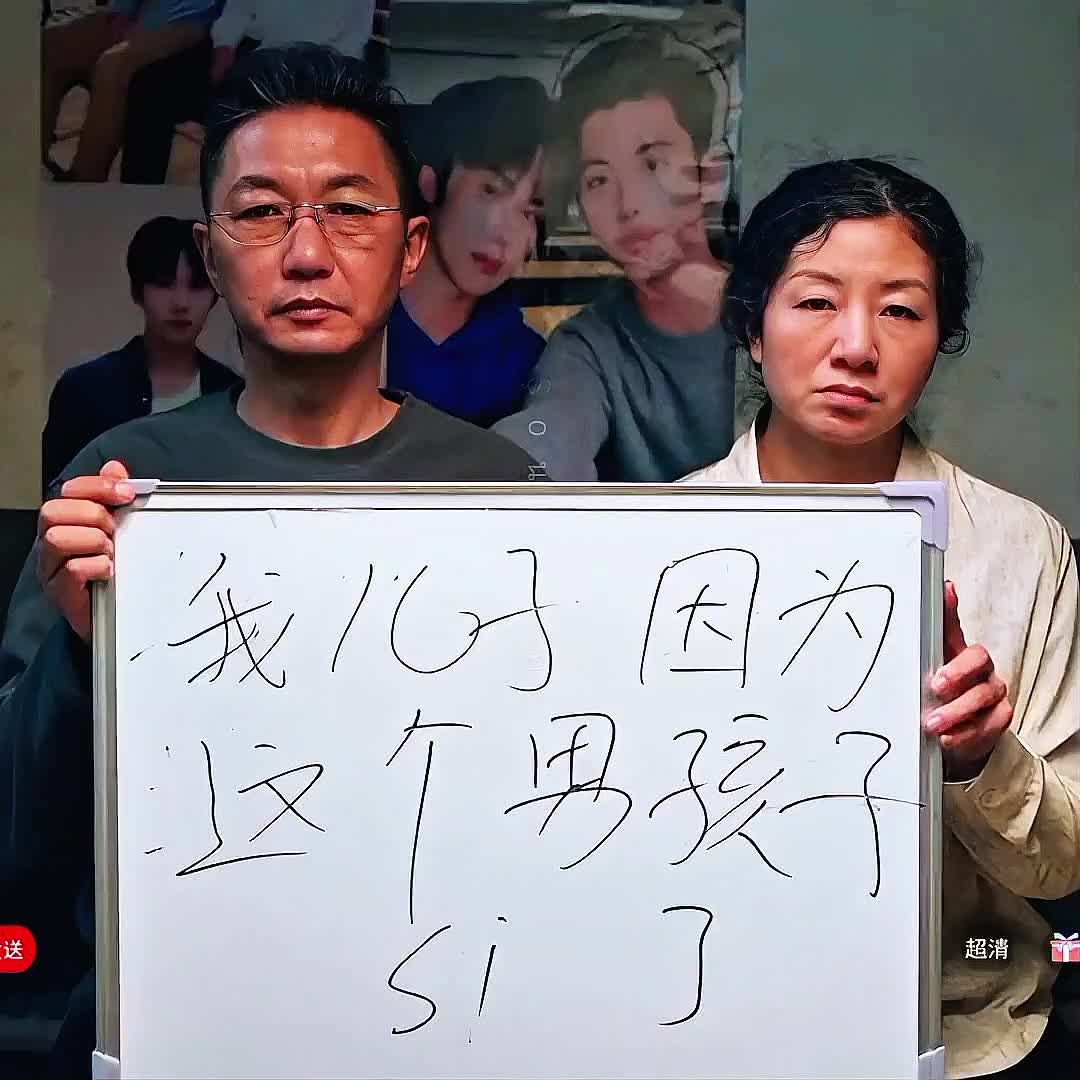 我儿子因为
这个男孩子
si了
送
超清